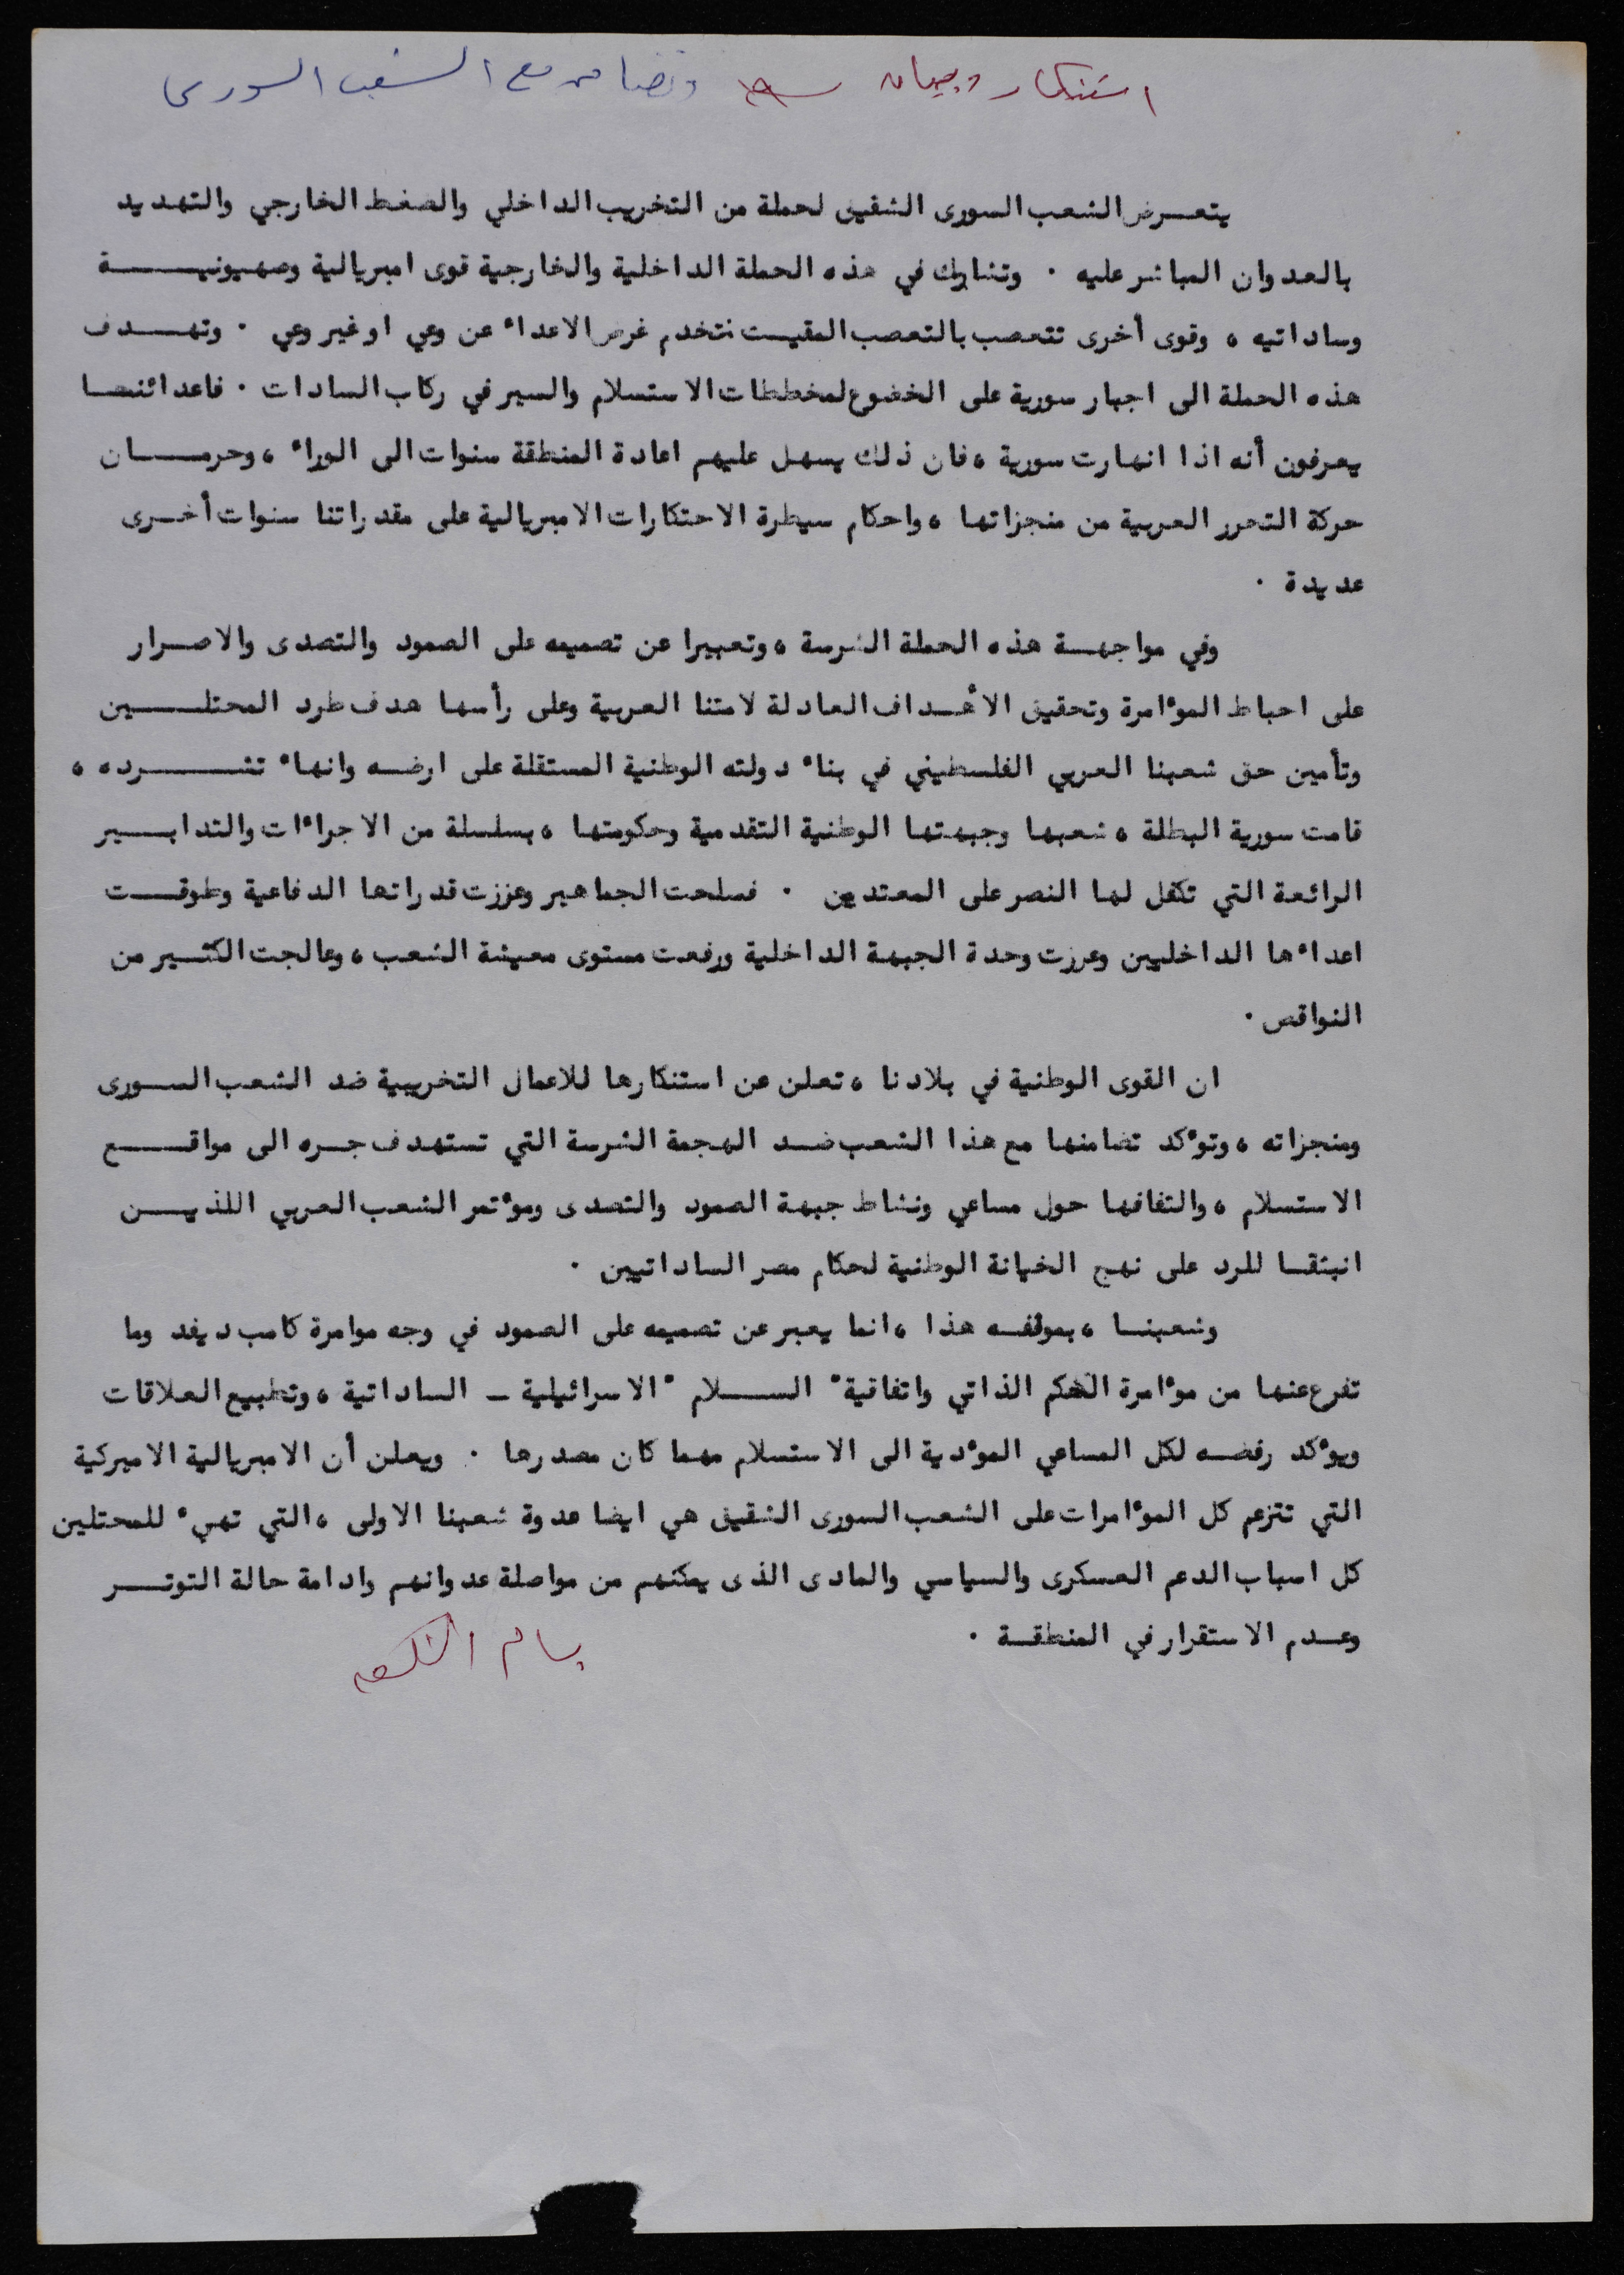 استنكار وبيان وتضامن مع الشعب السوري
يتعرض الشعب السورى الشقيق لحملة من التخريب الداخلي والضغط الخارجي والتهديد
بالعدوان المباشر عليه . وتشارك في هذه الحملة الداخلية والخارجية قوى امبريالية وصهيونية
وساداتيه ، وقوى أخرى تتعصب بالتعصب المقيت تخدم غرض الاعداء عن وعي او غير وعي . وتهدف
هذه الحملة الى اجبار سورية على الخضوع لمخططات الاستسلام والسير في ركاب السادات . فاعدائنا
يعرفون أنه اذا انهارت سورية ، فان ذلك يسهل عليهم اعادة المنطقة سنوات الى الوراء ، وحرمان
حركة التحرر العربية من منجزاتها ، واحكام سيطرة الاحتكارات الامبريالية على مقدراتنا سنوات أخرى
عديدة .
وفي مواجهة هذه الحملة الشرسة ، وتعبيرا عن تصميمه على الصمود والتصدى والاصرار
على احباط المؤامرة وتحقيق الأهداف العادلة لامتنا العربية وعلى رأسها هدف طرد المحتلين
وتأمين حق شعبنا العربي الفلسطيني في بناء دولته الوطنية المستقلة على ارضه وانهاء تشرده ،
قامت سورية البطلة ، شعبها وجبهتها الوطنية التقدمية وحكومتها ، بسلسلة من الاجراءات والتدابير
الرائعة التي تكفل لها النصر على المعتدين . فسلحت الجماهير وعززت قدراتها الدفاعية وطوقت
اعداءها الداخليين وعززت وحدة الجبهة الداخلية ورفعت مستوى معيشة الشعب ، وعالجت الكثير من
النواقص .
ان القوى الوطنية في بلادنا ، تعلن عن استنكارها للاعمال التخريبية ضد الشعب السورى
ومنجزاته ، وتؤكد تضامنها مع هذا الشعب ضد الهجمة الشرسة التي تستهدف جره الى مواقع
الاستسلام ، والتفافها حول مساعي ونشاط جبهة الصمود والتصدى ومؤتمر الشعب العربي اللذين
انبثقا للرد على نهج الخيانة الوطنية لحكام مصر الساداتيين .
وشعبنا ، بموقفه هذا ، انما يعبر عن تصميمه على الصمود في وجه موامرة كامب ديفد وما
تفرع عنها من مؤامرة الحكم الذاتي واتفاقية " السلام " الاسرائيلية - الساداتية ، وتطبيع العلاقات
ويؤكد رفضه لكل المساعي المؤدية الى الاستسلام مهما كان مصدرها . ويعلن أن الامبريالية الاميركية
التي تتزعم كل المؤامرات على الشعب السورى الشقيق هي ايضا عدوة شعبنا الاولى ، التي تهيء للمحتلين
كل اسباب الدعم العسكرى والسياسي والمادى الذى يمكنهم من مواصلة عدوانهم وادامة حالة التوتر
وعدم الاستقرار في المنطقة .
بسام الشكعه